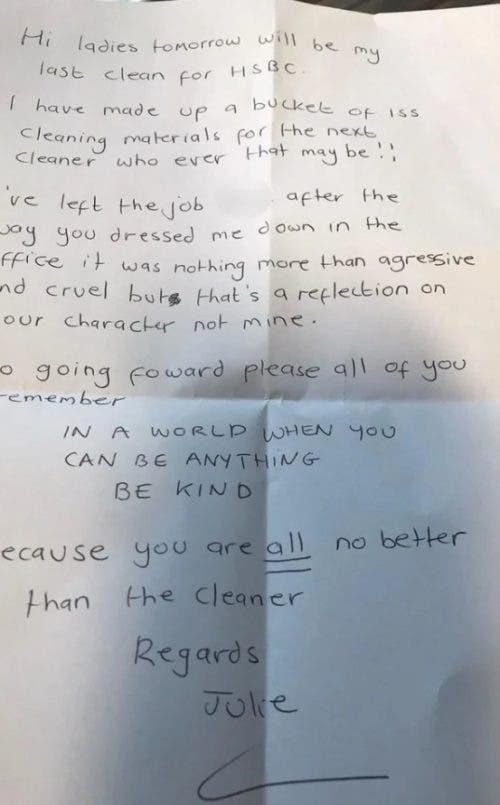 Hi ladies tomorrow will be my
last clean for HSBC.
I have made up a bucket of iss
cleaning materials for the next
cleaner who ever that may be !!
've left the job after the
way you dressed me down in the
ffice it was nothing more than agressive
nd cruel but that's a reflection on
our character not mine.
o going foward please all of you
remember
IN A WORLD WHEN YOU
CAN BE ANYTHING
BE KIND
ecause you are all no better
than the cleaner
Regards
Julie